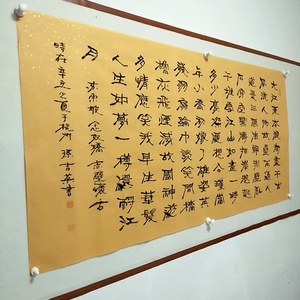 大江東去浪淘盡千古
風流人物故壘西邊人
道是三國周郎赤壁亂
石穿空驚濤拍岸捲起
千堆雪江山如畫一時
多少豪傑遙想公瑾當
年小喬初嫁了雄姿英
發羽扇綸巾談笑間檣
櫓灰飛煙滅故國神遊
多情應笑我早生華髮
人生如夢一樽還酹江
月 蘇東坡念奴嬌赤壁懷古
時在辛丑之夏于杭州 吉英書